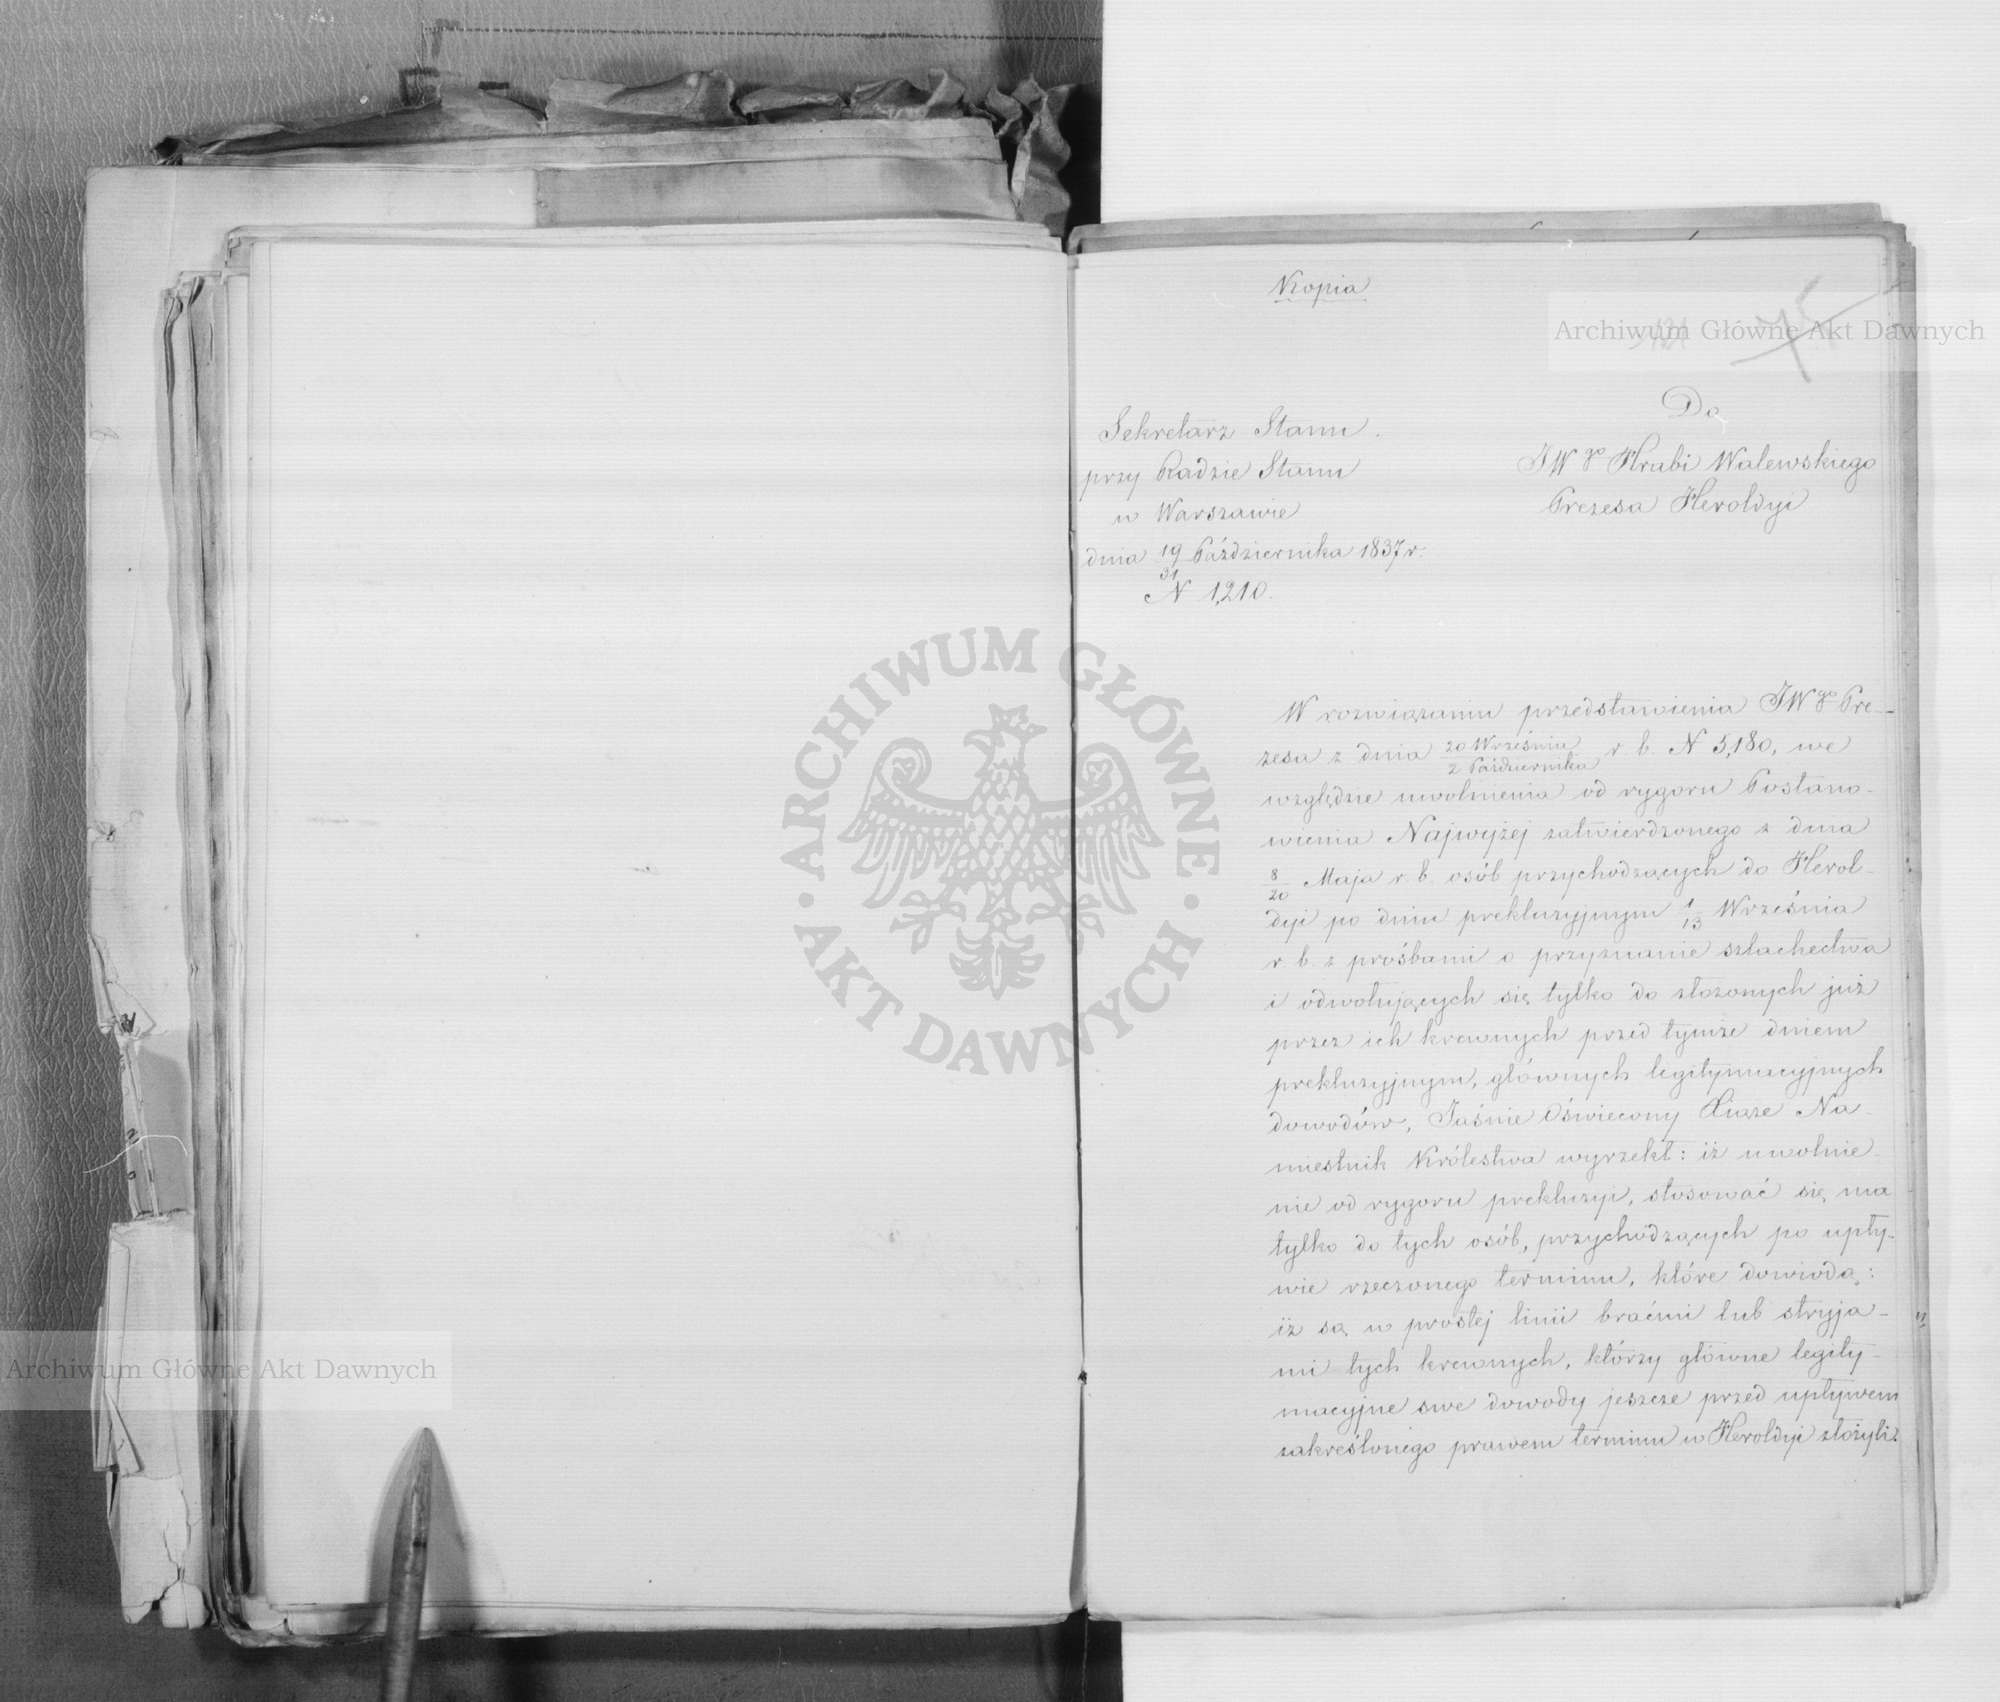 Kopia
Archiwum Główne Akt Dawnych
75
Sekretarz Stanu.
przy Radzie Stanu
w Warszawie
dnia 19/31 Października 1837 r.
N 1,210.
Do
JWgo Hrabi Walewskiego
Prezesa Heroldyi
W rozwiązaniu przedstawienia JWgo Pre-
zesa z dnia 20 Września/2 Października r. b. N 5,180, we
względzie uwolnienia od rygoru Postano-
wienia Najwyżej zatwierdzonego z dnia
8/20 Maja r. b. osób przychodzących do Herol-
dyi po dniu prekluzyjnym 1/13 Września
r. b. z prośbami o przyznanie szlachectwa
i odwołujących się tylko do złożonych już
przez ich krewnych przed tymże dniem
prekluzyjnym, głównych legitymacyjnych
dowodów, Jaśnie Oświecony Xiąże Na-
miestnik Królestwa wyrzekł: iż uwolnie-
nie od rygoru prekluzyi, stosować się ma
tylko do tych osób, przychodzących po upły-
wie rzeczonego terminu, które dowiodą:
iż są w prostej linii braćmi lub stryja-
mi tych krewnych, którzy główne legity-
macyjne swe dowody jeszcze przed upływem
zakreślonego prawem terminu w Heroldyi złożyli.
ARCHIWUM GŁÓWNE
AKT DAWNYCH
Archiwum Główne Akt Dawnych